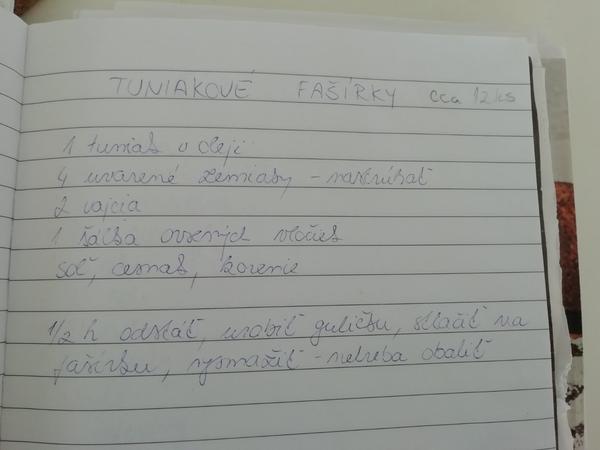 TUNIAKOVÉ FAŠÍRKY cca 12 ks
1 tuniak v oleji
4 uvarené zemiaky - nastrúhať
2 vajcia
1 šálka ovsených vločiek
soľ, cesnak, korenie
1/2 h odstáť, urobiť guličku, stlačiť na
fašírku, vysmažiť - netreba obaliť